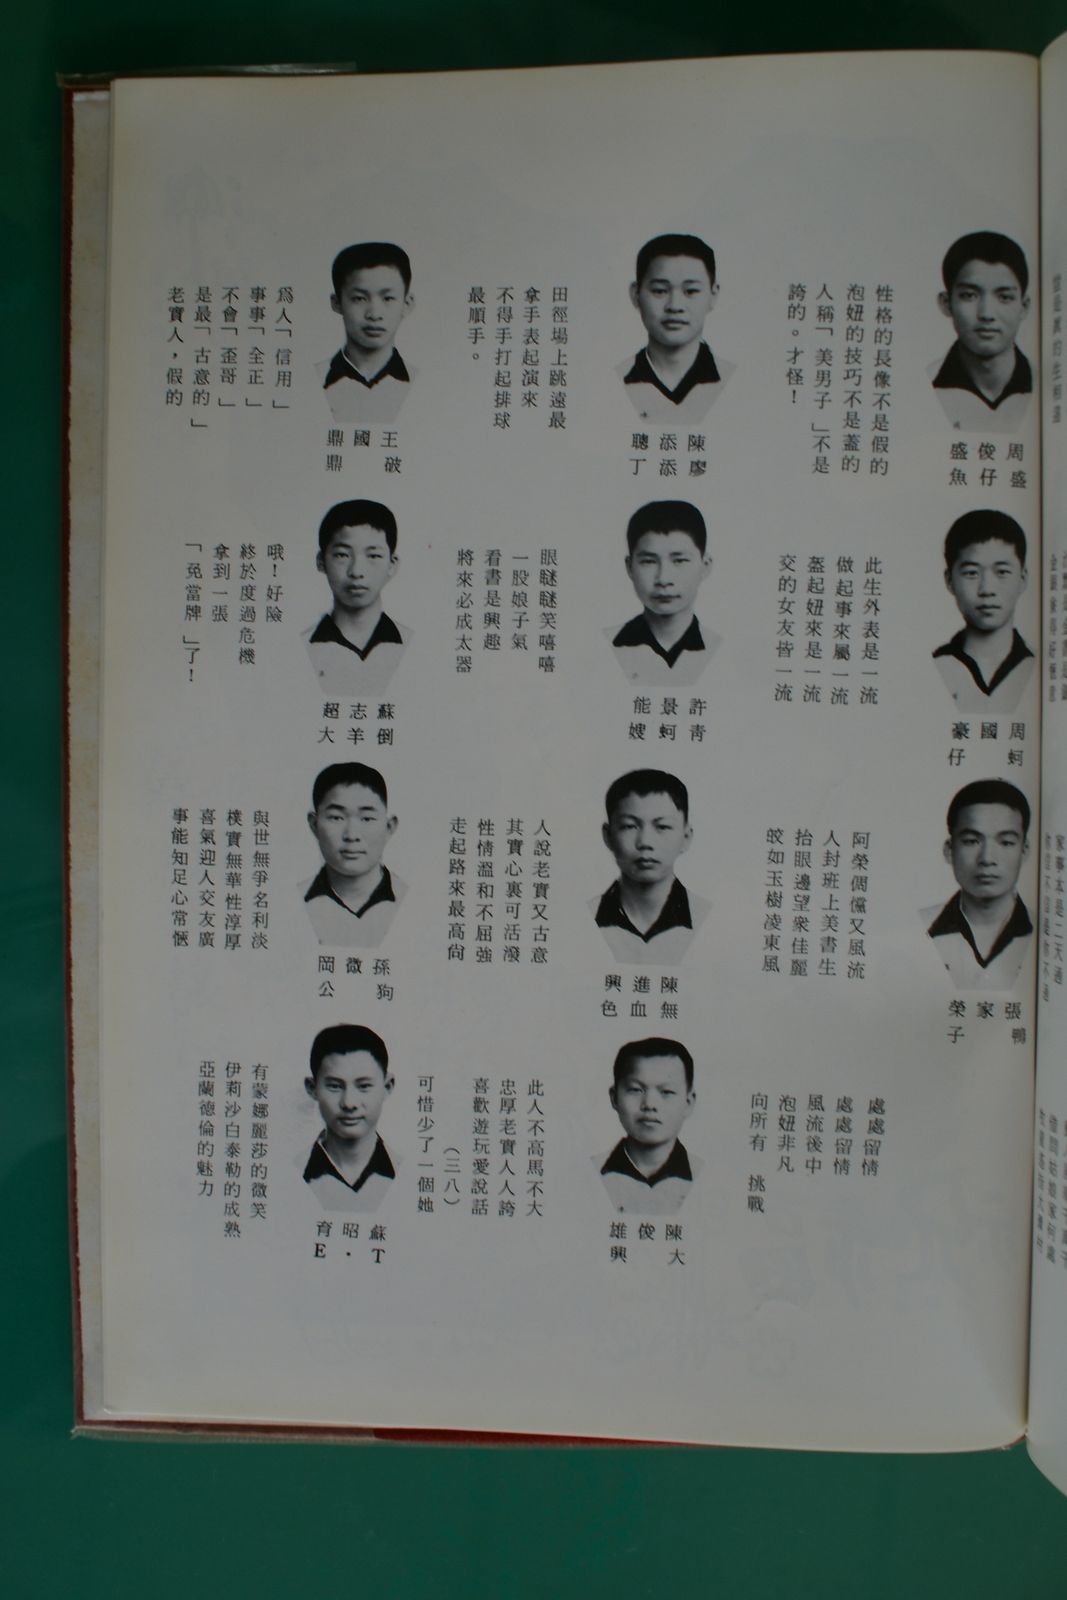 周俊盛
盛仔魚
性格的長像不是假的
泡妞的技巧不是蓋的
人稱「美男子」不是
誇的。才怪！
陳添聰
廖添丁
田徑場上跳遠最
拿手表起演來
不得手打起排球
最順手。
王國鼎
破鼎
爲人「信用」
事事「全正」
不會「歪哥」
是最「古意的」
老實人，假的
周國豪
蚵仔
此生外表是一流
做起事來屬一流
盔起妞來是一流
交的女友皆一流
許景能
青蚵嫂
眼瞇瞇笑嘻嘻
一股娘子氣
看書是興趣
將來必成太器
蘇志超
倒羊大
哦！好險
終於度過危機
拿到一張
「免當牌」了！
張家榮
鴨子
阿榮倜儻又風流
人封班上美書生
抬眼邊望衆佳麗
皎如玉樹凌東風
陳進興
無血色
人說老實又古意
其實心裏可活潑
性情溫和不屈強
走起路來最高尙
孫微岡
狗公
與世無爭名利淡
樸實無華性淳厚
喜氣迎人交友廣
事能知足心常愜
處處留情
處處留情
風流後中
泡妞非凡
向所有 挑戰
陳俊雄
大興
此人不高馬不大
忠厚老實人人誇
喜歡遊玩愛說話
（三八）
可惜少了一個她
蘇昭育
T．E
有蒙娜麗莎的微笑
伊莉沙白泰勒的成熟
亞蘭德倫的魅力